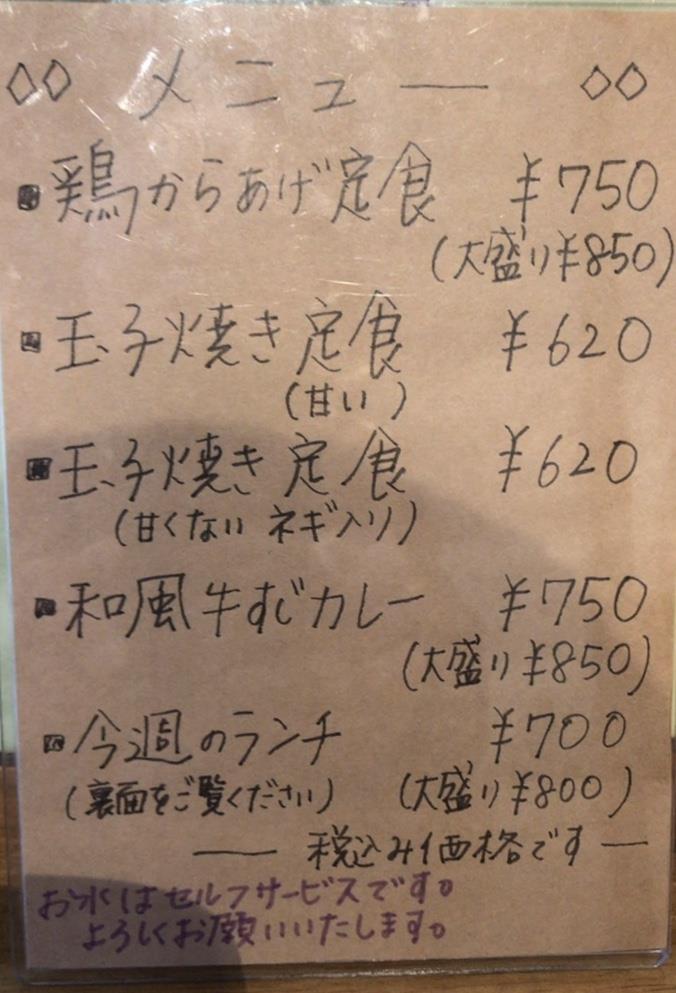 ◇◇ メニュー ◇◇
鶏からあげ定食 ¥750
(大盛り¥850)
玉子焼き定食 ¥620
(甘い)
玉子焼き定食 ¥620
(甘くない ネギ入り)
和風牛すじカレー ¥750
(大盛り¥850)
今週のランチ ¥700
(裏面をご覧ください) (大盛り¥800)
── 税込み価格です ─
お水はセルフサービスです。
よろしくお願いいたします。